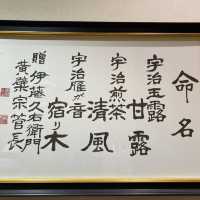 命名
宇治玉露
甘露
宇治煎茶
清風
宇治雁が音
宿り木
贈 伊藤久右衛門
黄檗宗管長